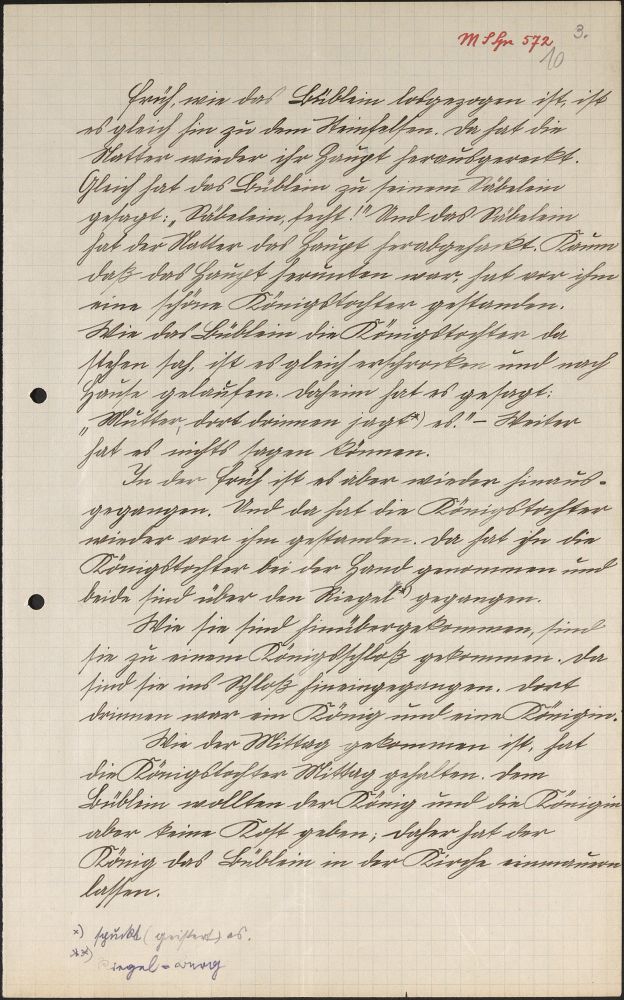 3.
M S fr 572
10
Früh, wie das Büblein losgezogen ist, ist
es gleich hin zu dem Steinfelsen. Da hat die
Natter wieder ihr Haupt herausgereckt.
Gleich hat das Büblein zu seinem Säbelein
gesagt: „Säbelein, ficht!" Und das Säbelein
hat der Natter das Haupt herabgehackt. Kaum
daß das Haupt herunten war, hat vor ihm
eine schöne Königstochter gestanden.
Wie das Büblein die Königstochter da
stehen sah, ist es gleich erschrocken und nach
Hause gelaufen. Daheim hat es gesagt:
„Mutter, dort drinnen jagt *) es." – Weiter
hat es nichts sagen können.
In der Früh ist es aber wieder hinaus-
gegangen. Und da hat die Königstochter
wieder vor ihm gestanden. Da hat ihn die
Königstochter bei der Hand genommen und
beide sind über den Riegel **) gegangen.
Wie sie sind hinübergekommen, sind
sie zu einem Königsschloß gekommen. Da
sind sie ins Schloß hineingegangen. Dort
drinnen war ein König und eine Königin.
Wie der Mittag gekommen ist, hat
die Königstochter Mittag gehalten. Dem
Büblein wollten der König und die Königin
aber keine Kost geben; daher hat der
König das Büblein in der Kirche einmauern
lassen.
*) spukt (geistert) es.
**) Riegel = Berg